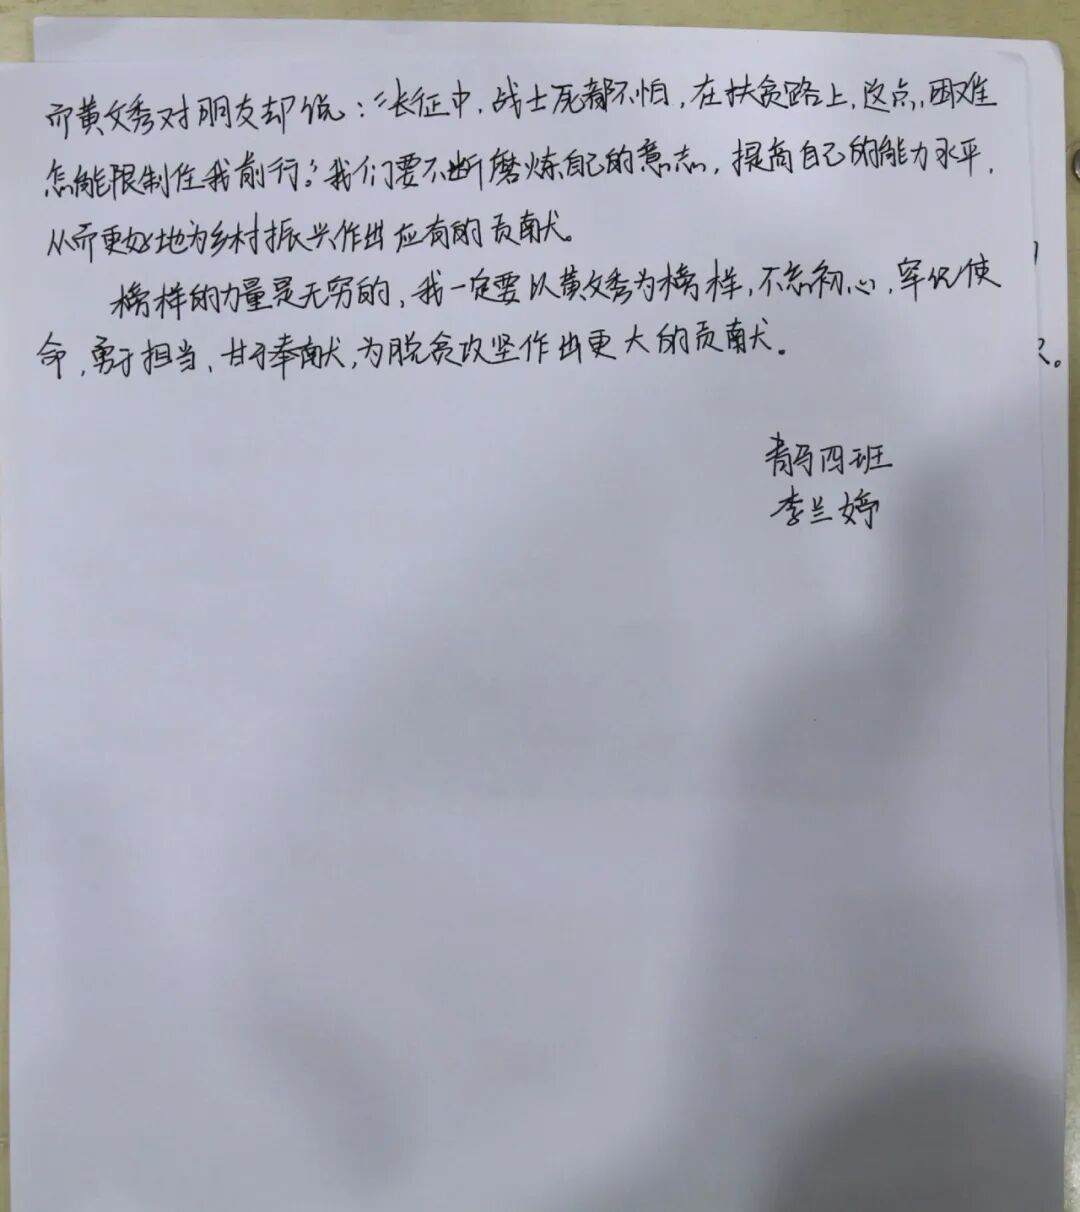 而黄文秀对朋友却说：“长征中，战士死都不怕，在扶贫路上，这点困难
怎能限制住我前行。”我们要不断磨炼自己的意志，提高自己的能力水平，
从而更好地为乡村振兴作出应有的贡献。
榜样的力量是无穷的，我一定要以黄文秀为榜样，不忘初心，牢记使
命，勇于担当、甘于奉献，为脱贫攻坚作出更大的贡献。
青马四班
李兰婷